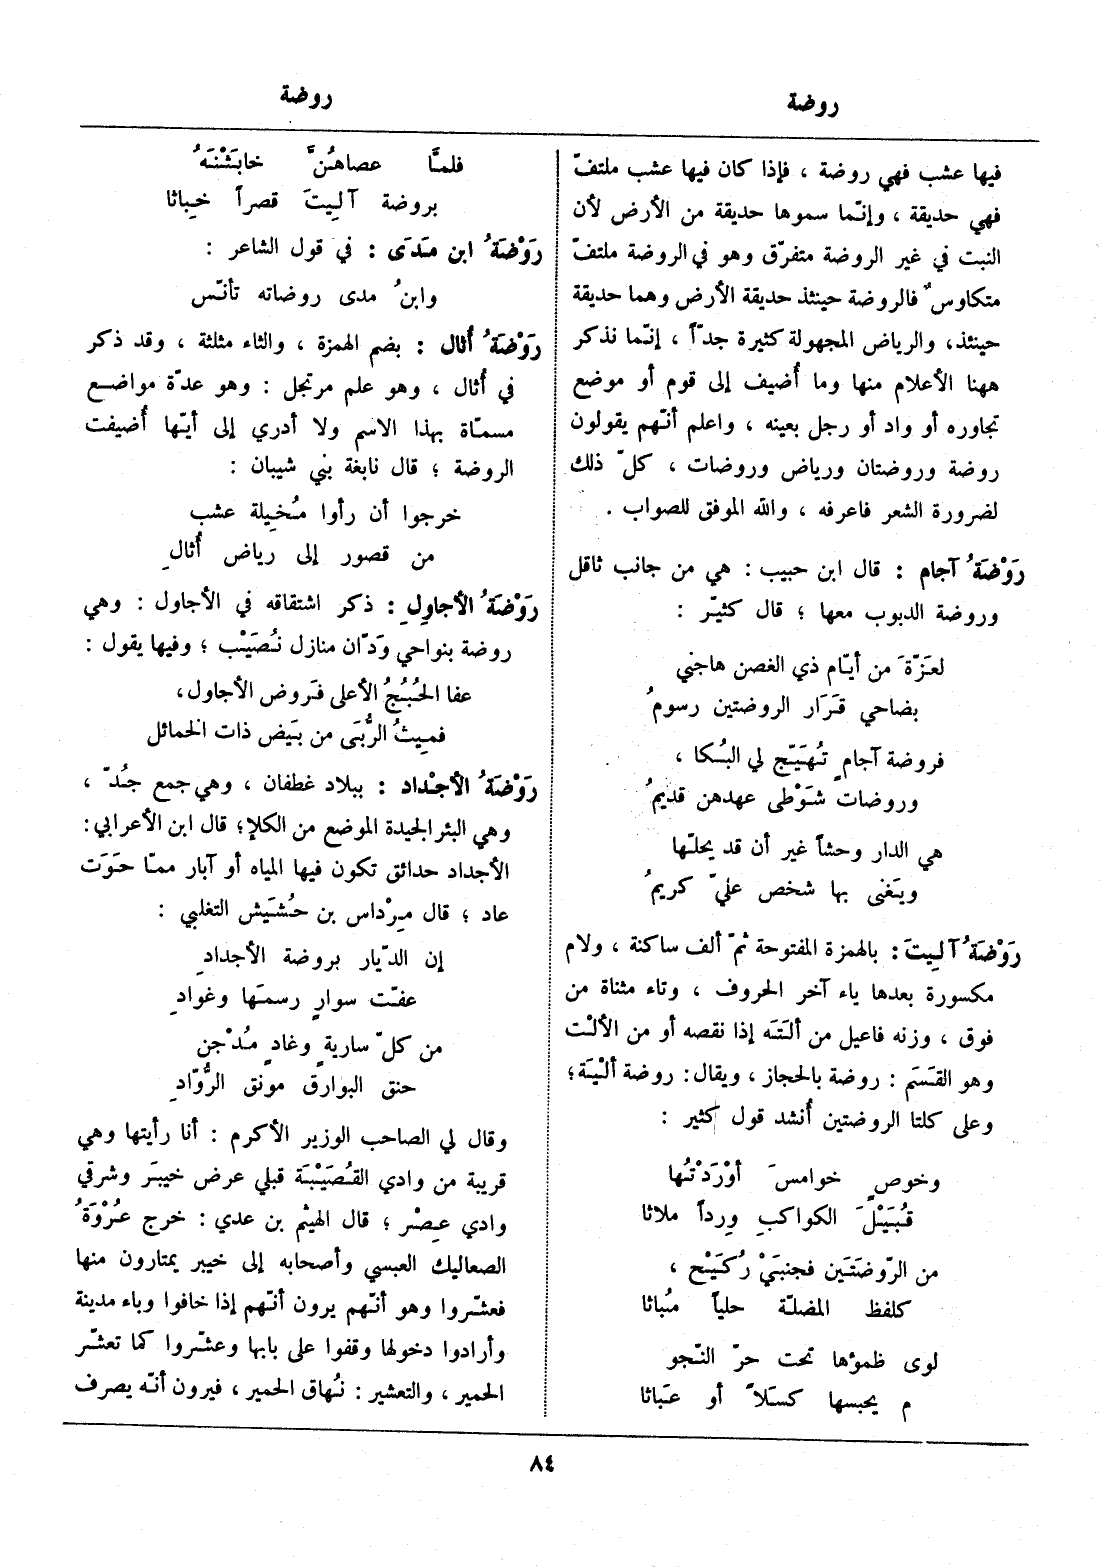 روضة
روضة
فيها عشب فهي روضة ، فإذا كان فيها عشب ملتفّ
فهي حديقة ، وإنّما سموها حديقة من الأرض لأن
النبت في غير الروضة متفرّق وهو في الروضة ملتفّ
متكاوسٌ فالروضة حينئذ حديقة الأرض وهما حديقة
حينئذ، والرياض المجهولة كثيرة جدّاً ، إنّما نذكر
ههنا الأعلام منها وما أُضيف إلى قوم أو موضع
تجاوره أو واد أو رجل بعينه ، واعلم أنّهم يقولون
روضة وروضتان ورياض وروضات ، كلّ ذلك
لضرورة الشعر فاعرفه ، والله الموفق للصواب .
رَوْضَةُ آجام : قال ابن حبيب : هي من جانب ثاقل
وروضة الدبوب معها ؛ قال كثيّر :
لعَزّةَ من أيّام ذي الغصن هاجني
بضاحي قَرَار الروضتين رسومُ
فروضة آجامٍ تُهَيّج لي البُكا ،
وروضات شَوْطى عهدهن قديمُ
هي الدار وحشاً غير أن قد يحلّها
ويَغنى بها شخص عليّ كريمُ
رَوْضَةُ آلِيتَ : بالهمزة المفتوحة ثمّ ألف ساكنة ، ولام
مكسورة بعدها ياء آخر الحروف ، وتاء مثناة من
فوق ، وزنه فاعيل من ألَتَه إذا نقصه أو من الألْت
وهو القَسَم : روضة بالحجاز ، ويقال : روضة ألْيَة؛
وعلى كلتا الروضتين أُنشد قول كثير :
وخوصٍ خوامسَ أوْرَدْتُها
قُبَيْلَ الكواكبِ وِرداً ملاثا
من الرّوضَتَين فجنبَيْ رُكَيْح ،
كلفظ المضلّة حلياً مُباثا
لوى ظمؤها تحت حرّ النّجو
م يحبسها كسَلاً أو عَباثا
فلمَّا عصاهُنَّ خابَثْنَهُ
بروضة آلِيتَ قصراً خِباثا
رَوْضَةُ ابن مَدَى : في قول الشاعر :
وابنُ مدى روضاته تأنَس
رَوْضَةُ أُثال : بضم الهمزة ، والثاء مثلثة ، وقد ذكر
في أُثال ، وهو علم مرتجل : وهو عدّة مواضع
مسمّاة بهذا الاسم ولا أدري إلى أيّها أُضيفت
الروضة ؛ قال نابغة بني شيبان :
خرجوا أن رأوا مُخيلة عشب
من قصور إلى رياض أُثالِ
رَوْضَةُ الأجاوِل : ذكر اشتقاقه في الأجاول : وهي
روضة بنواحي وَدّان منازل نُصَيْب ؛ وفيها يقول :
عفا الحُبُجُ الأعلى فَروض الأجاول،
فمِيثُ الرُّبَى من بَيض ذات الخمائل
رَوْضَةُ الأجْداد : ببلاد غطفان ، وهي جمع جُدّ ،
وهي البئر الجيدة الموضع من الكلإ؛ قال ابن الأعرابي:
الأجداد حدائق تكون فيها المياه أو آبار ممّا حَوَت
عاد ؛ قال مِرْداس بن حُشَيش التغلبي :
إن الدّيار بروضة الأجدادِ
عفّت سوارٍ رسمَها وغوادِ
من كلّ ساريةٍ وغادٍ مُدْجن
حنق البوارق مونق الرُّوّادِ
وقال لي الصاحب الوزير الأكرم : أنا رأيتها وهي
قريبة من وادي القُصَيْبَة قبلي عرض خيبَر وشرقي
وادي عِصْر ؛ قال الهيثم بن عدي : خرج عُرْوَةُ
الصعاليك العبسي وأصحابه إلى خيبر يمتارون منها
فعشّروا وهو أنّهم يرون أنّهم إذا خافوا وباء مدينة
وأرادوا دخولها وقفوا على بابها وعشّروا كما تعشّر
الحمير ، والتعشير : نُهاق الحمير ، فيرون أنّه يصرف
٨٤